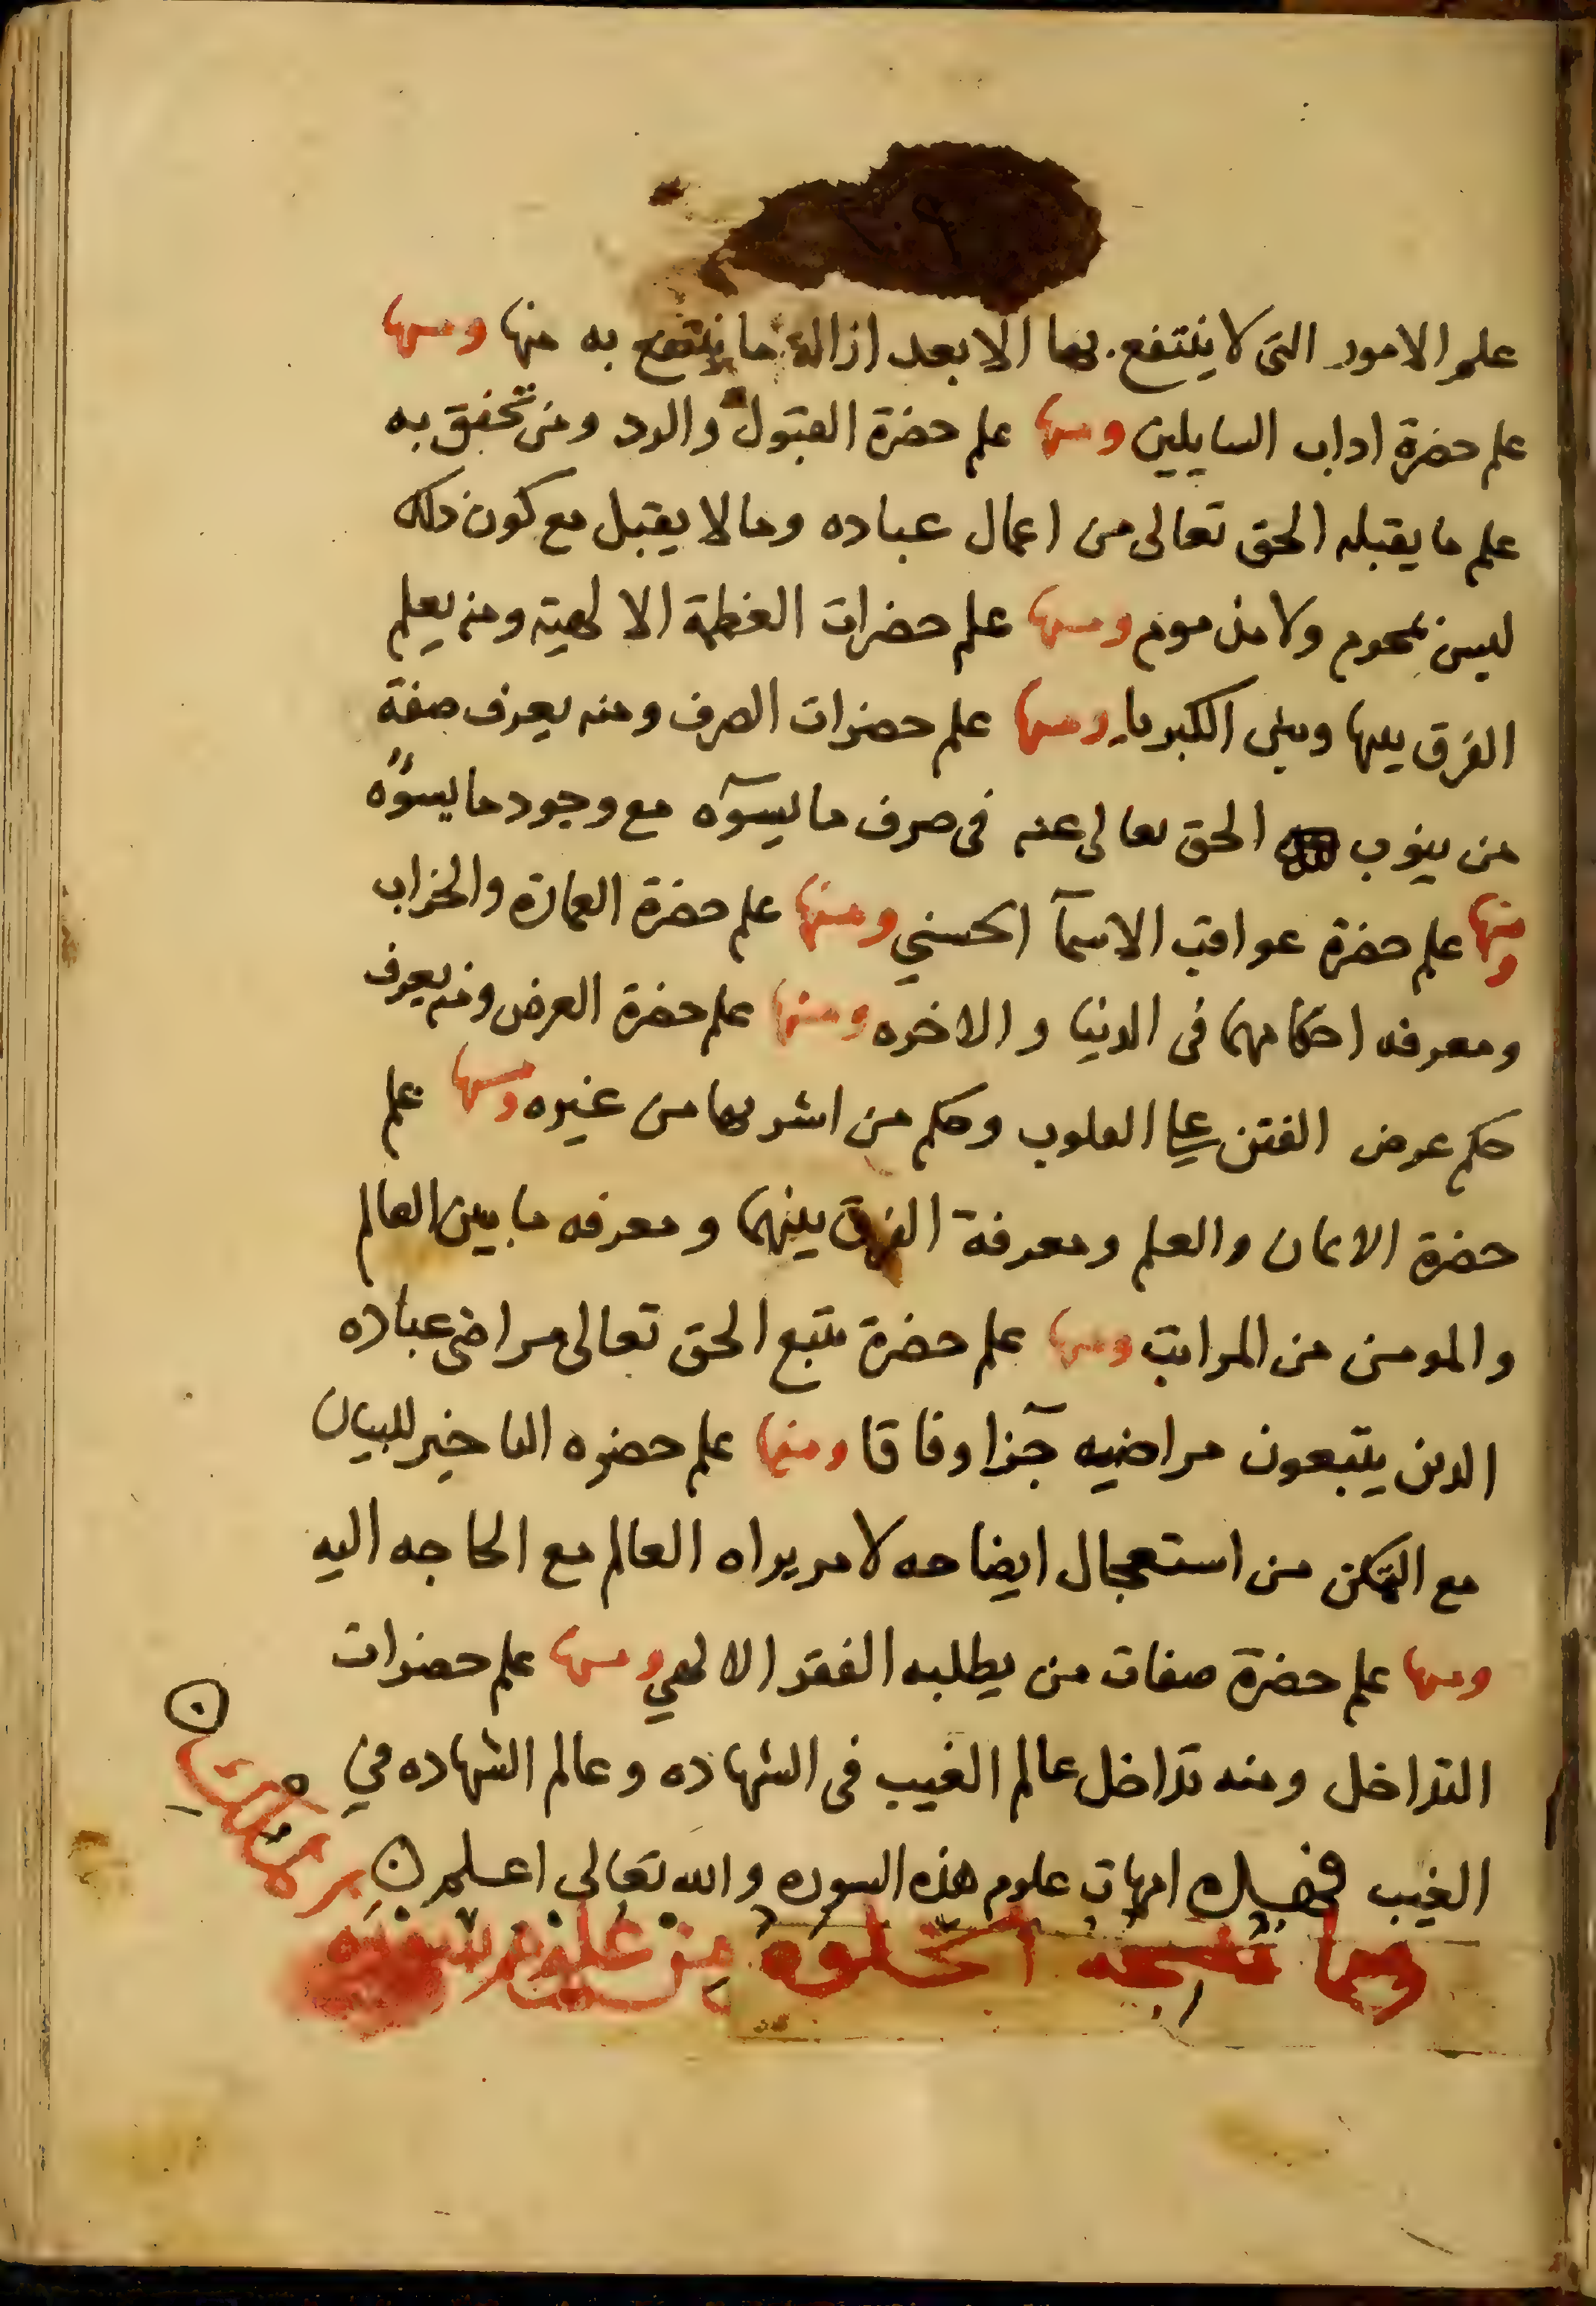 علم الامور التى لا ينتفع بها الا بعد ازالة ما ينتفع به منها ومنها
علم حضرة اداب السايلين ومنها علم حضرة القبول والرد ومن تحقق به
علم ما يقبله الحق تعالى من اعمال عباده وما لا يقبل مع كون ذلك
ليس بمحرم ولا مذموم ومنها علم حضرات العظمة الالهية ومنه يعلم
الفرق بينها وبين الكبريا ومنها علم حضرات الصرف ومنه يعرف صفة
من ينوب الحق تعالى عنه فى صرف ما يسوٓه مع وجود ما يسوّه
ومنها علم حضرة عواقب الاسمآ الحسني ومنها علم حضرة العمارة والخراب
ومعرفه احكامهما فى الدنيا والاخره ومنها علم حضرة العرض ومنه يعرف
حكم عرض الفتن على القلوب وحكم من اشربها من غيره ومنها علم
حضرة الايمان والعلم ومعرفة الفرق بينهما ومعرفه ما بين العالم
والمومن من المراتب ومنها علم حضرة تتبع الحق تعالى مراضى عباده
الدين يتبعون مراضيه جزآ وفاقا ومنها علم حضره التاخير للبيان
مع التمكن من استعجال ايضاحه لامر يراه العالم مع الحاجه اليه
ومنها علم حضرة صفات من يطلبه الفقر الالهي ومنها علم حضرات
التداخل ومنه تداخل عالم الغيب فى الشهاده وعالم الشهاده في
الغيب فهذه امهات علوم هذه السوره والله تعالى اعلم
ومما نتيجه الخلوة من علوم سورة